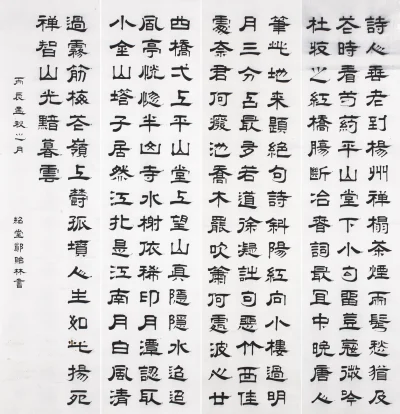 詩人垂老到楊州禪榻茶煙兩鬢愁猶及
花時看芍藥平山堂下小句留豆蔻微吟
杜牧之紅橋腸斷冶春詞最宜中晚唐人
筆此地來題絕句詩斜陽紅向小樓過明
月三分占最多若道徐凝詩句惡竹西佳
處奈君何廢池喬木罷吹簫何處波心廿
四橋弌上平山堂上望山真隱隱水迢迢
風亭恍惚半山寺水榭依稀印月潭認取
小金山塔子居然江北是江南月白風清
過露筋梅花嶺上酹孤墳人生如此揚死
禪智山光黯暮雲
丙辰孟秋之月
紹堂鄒貽林書